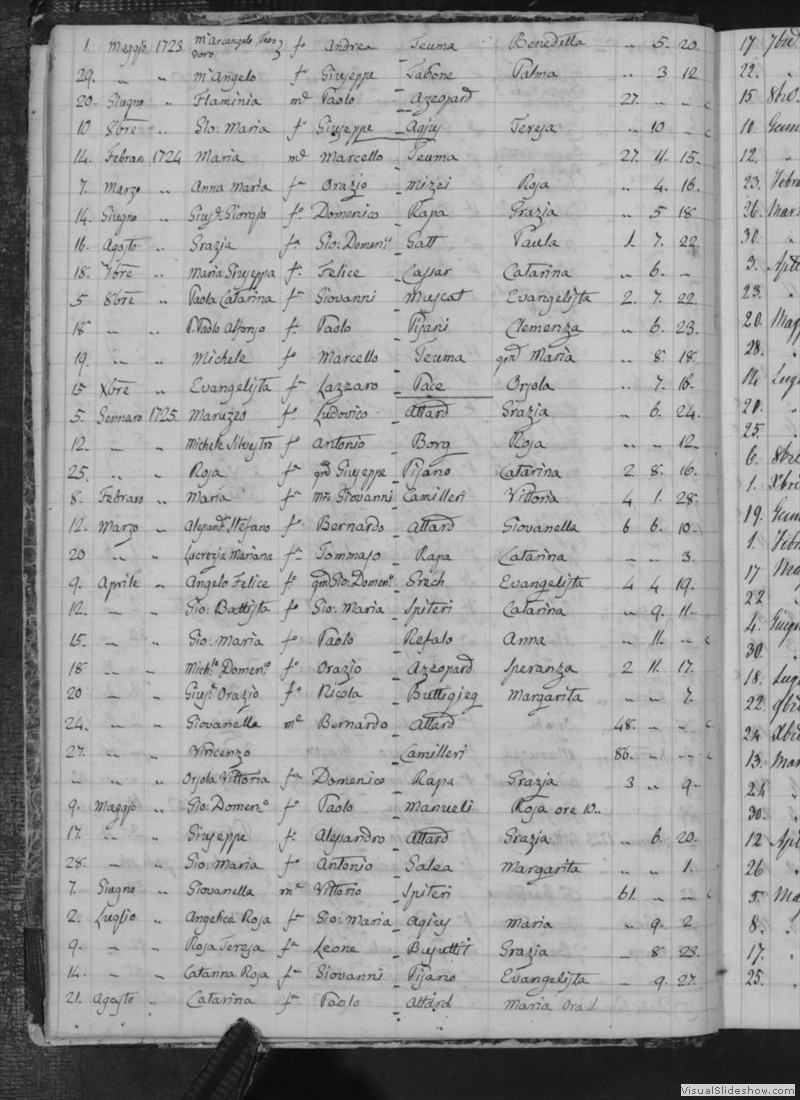 1. Maggio 1723. Mª Arcangelo Teodoro fº Andrea Teuma Benedetta .. 5. 20.
29. .. .. Mª Angelo fº Giuseppe Tabone Palma .. 3 12
20. Giugno .. Flaminia mᵉ Paolo Azzopard 27. .. ..
10 8bre .. Gio: Maria fº Giuseppe Agius Teresa .. 10 ..
14. Febraro 1724 Maria mᵉ Marcello Teuma 27. 11. 15.
7. Marzo .. Anna Maria fª Orazio Mizzi Rosa .. 4. 16.
14. Giugno .. Gius. Giorgio fº Domenico Rapa Grazia .. 5 18
16. Agosto .. Grazia fª Gio: Domenᶜº Gatt Paula 1. 7. 22
18. 7bre .. Maria Giuseppa fª Felice Cassar Catarina .. 6. ..
5 8bre .. Paola Catarina fª Giovanni Muscat Evangelista 2. 7. 22.
18 .. .. P. Paolo Alfonso fº Paolo Pisani Clemenza .. 6. 23.
19. .. .. Michele fº Marcello Teuma qm Maria .. 8. 18.
15 Xbre .. Evangelista fª Lazzaro Pace Orsola .. 7. 16.
5. Gennaro 1725. Maruzzo fº Ludovico Attard Grazia .. 6. 24.
12. .. .. Michele Silvestro fº Antonio Borg Rosa .. .. 12.
25. .. .. Rosa fª qm Giuseppe Pisano Catarina 2 8. 16.
8. Febraro .. Maria fª Giovanni Camilleri Vittoria 4 1. 28.
12. Marzo .. Alessand. Stefano fº Bernardo Attard Giovanella 6 6. 10.
20 .. .. Lucrezia Mariana fª Tommaso Rapa Catarina .. .. 3.
9. Aprile .. Angelo Felice fº qm Gio: Domenº Grech Evangelista 4 4 19.
12. .. .. Gio: Battista fº Gio: Maria Spiteri Catarina .. 9. 11.
15. .. .. Gio: Maria fº Paolo Refalo Anna .. 11. ..
18 .. .. Michˡᵉ Domenº fº Orazio Azzopard Speranza 2 11. 17.
20 .. .. Gius. Orazio fº Nicola Buttigieg Margarita .. .. 7.
24. .. .. Giovanella mᵉ Bernardo Attard 48. .. ..
27. .. .. Vincenzo Camilleri 86. .. ..
.. .. .. Orsola Vittoria fª Domenico Rapa Grazia 3 .. 9.
9. Maggio .. Gio: Domenº fº Paolo Manueli Rosa ore 10..
17. .. .. Giuseppe fº Alessandro Attard Grazia .. 6. 20.
28. .. .. Gio: Maria fº Antonio Galea Margarita .. .. 1.
7. Giugno .. Giovanella mᵉ Vittorio Spiteri 61. .. ..
2. Luglio .. Angelica Rosa fª Gio: Maria Agius Maria .. 9. 2
9. .. .. Rosa Teresa fª Leone Busuttil Grazia .. 8 23.
14. .. .. Catarina Rosa fª Giovanni Pisano Evangelista .. 9. 27.
21. Agosto .. Catarina fª Paolo Attard Maria Ora 1
17 7bre
22. ..
15 8bre
10. Genn
12. ..
23. Febra
26. Marz
30. ..
3. Apri
23. ..
20. Magg
28. ..
14. Lugl
20. ..
25.
6. 8bre
1. Xbre
19. Genn
1. Febr
17 Ma
22 ..
4. Giugn
30. ..
18. Lugl
22. 9bre
24 Xbre
13. Mar
24 ..
30. ..
12 Apri
26 ..
5. Ma
8. ..
17. ..
25. ..
VisualSlideshow.com